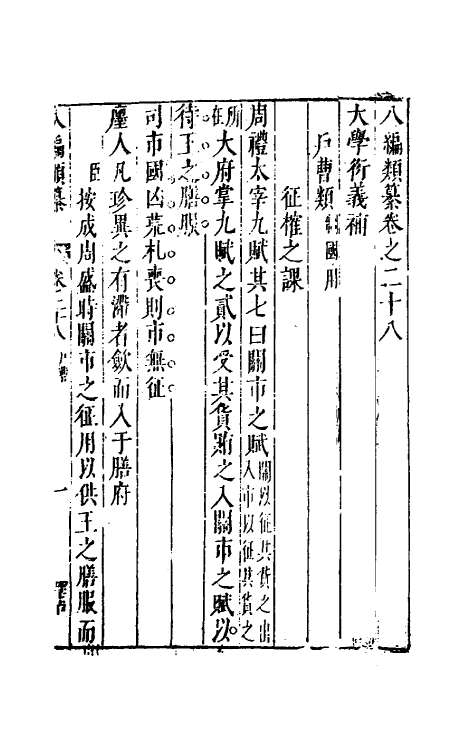 八編類纂卷之二十八
大學衍義補
戶曹類 制國用
征榷之課
周禮太宰九賦其七曰關市之賦關以征其貨之出入市以征其貨之
所在大府掌九賦之貳以受其貨賄之入關市之賦以
待王之膳服
司市國凶荒札喪則市無征
廛人凡珍異之有滯者斂而入于膳府
臣按成周盛時關市之征用以供王之膳服而
八編類纂 卷二十八 戶曹 一